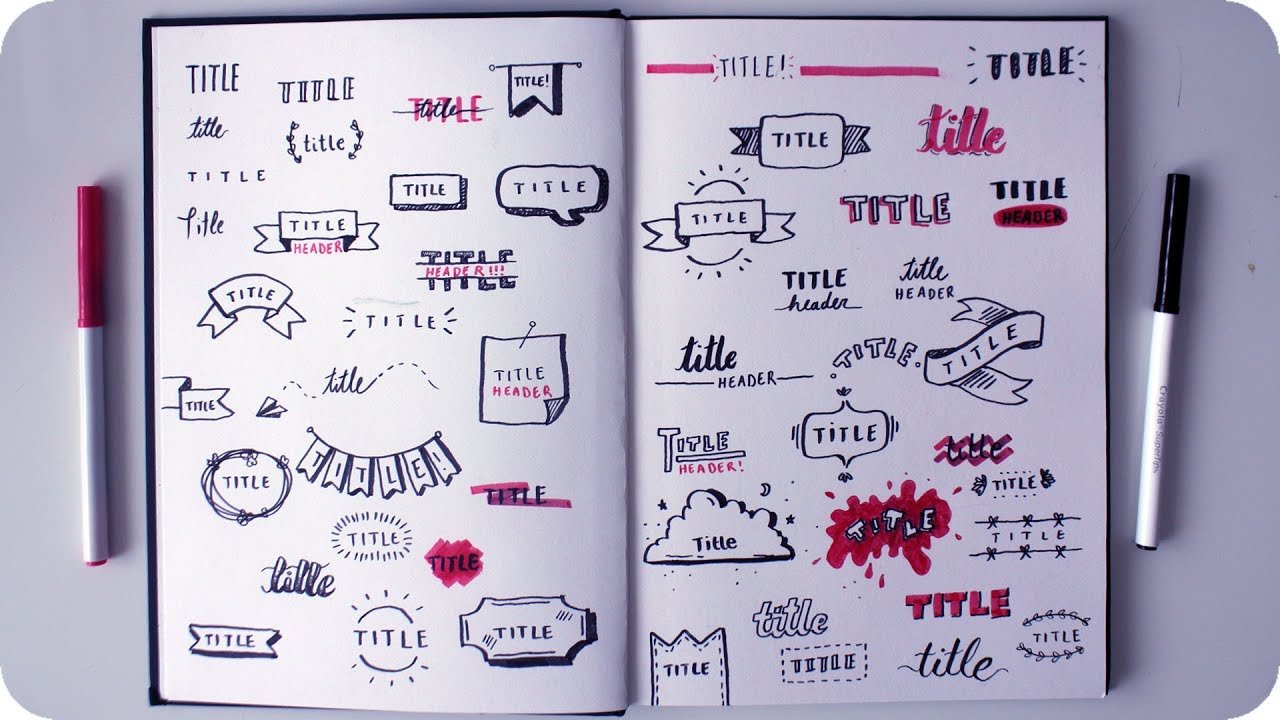 TITLE
TITLE
title
TITLE
title
TITLE!
title
TITLE
TITLE
TITLE
Title
TITLE
HEADER
TITLE
HEADER!!!
TITLE
TITLE
TITLE
title
TITLE
HEADER
TITLE
TITLE
TITLE!
TITLE
TITLE
TITLE
title
TITLE
TITLE
TITLE
TITLE
TITLE!
TITLE
TITLE
title
TITLE
TITLE
TITLE
HEADER
TITLE
header
title
HEADER
title
HEADER
TITLE
TITLE
TITLE
TITLE
HEADER!
title
TITLE
Title
TITLE
TITLE
title
TITLE
TITLE
TITLE
TITLE
title
Crayola